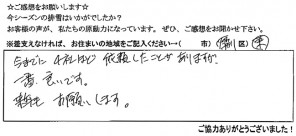 ☆ご感想をお願いします☆
今シーズンの排雪はいかがでしたか？
お客様の声が、私たちの原動力になっています。ぜひ、ご感想をお聞かせ下さい。
※差支えなければ、お住まいの地域をご記入ください…（ 市）（ 区）（東）
今までに 4社ほど 依頼したことが ありますが、
一番 良いです。
お願いします。
ご協力ありがとうございました！